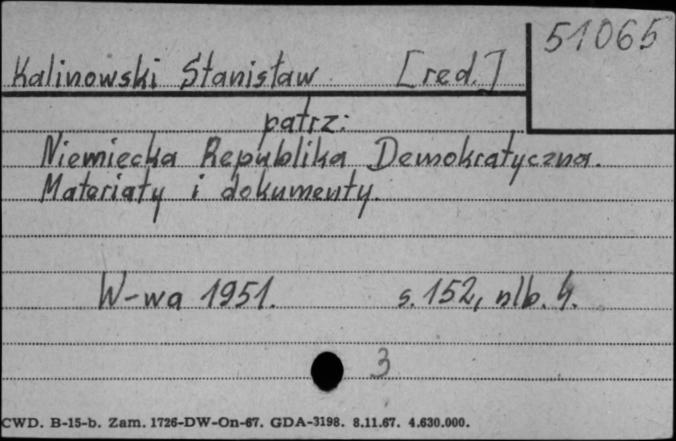 51065
Kalinowski Stanisław [red.]
patrz:
Niemiecka Republika Demokratyczna.
Materiały i dokumenty.
W-wa 1951. s. 152, nlb. 4.
3
CWD. B-15-b. Zam. 1726-DW-On-67. GDA-3198. 8.11.67. 4.630.000.